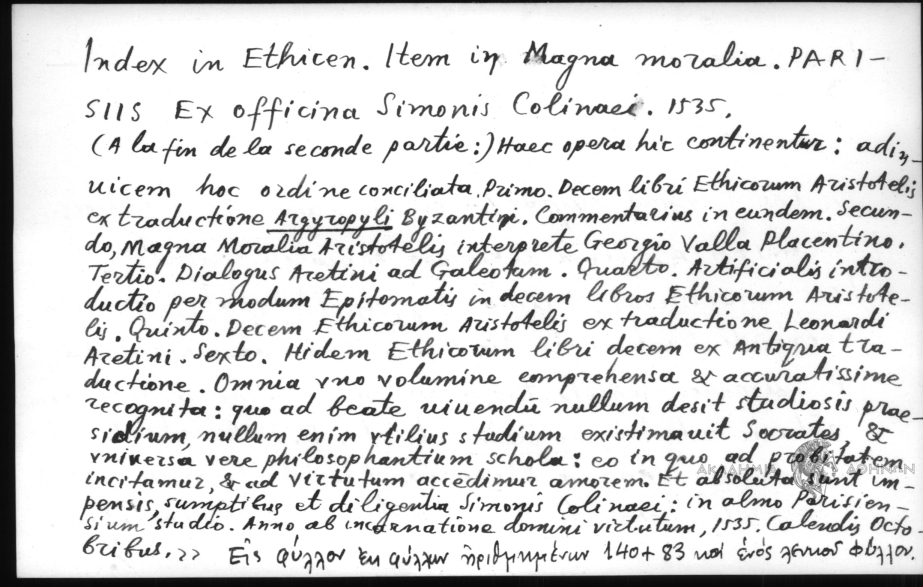 Index in Ethicen. Item in Magna moralia. PARI-
SIIS Ex officina Simonis Colinaei. 1535.
(A la fin de la seconde partie:) Haec opera hic continentur: adin-
uicem hoc ordine conciliata. Primo. Decem libri Ethicorum Aristotelis
ex traductione Argyropyli Byzantini. Commentarius in eundem. Secun-
do, Magna Moralia Aristotelis interprete Georgio Valla Placentino.
Tertio. Dialogus Aretini ad Galeotum. Quarto. Artificialis intro-
ductio per modum Epitomatis in decem libros Ethicorum Aristote-
lis. Quinto. Decem Ethicorum Aristotelis ex traductione Leonardi
Aretini. Sexto. Hidem Ethicorum libri decem ex Antiqua tra-
ductione. Omnia vno volumine comprehensa & accuratissime
recognita: quo ad beate uiuendū nullum desit studiosis prae-
sidium, nullum enim vtilius studium existimauit Socrates, &
vniversa vere philosophantium schola: eo in quo ad probitatem
incitamur, & ad virtutum accedimur amorem. Et absoluta sunt im-
pensis, sumptibus et diligentia Simonis Colinaei: in almo Parisien-
sium studio. Anno ab incarnatione domini virtutum, 1535. Calendis Octo-
bribus. >> Εἰς φύλλον ἐκ φύλλων ἠριθμημένων 140 + 83 καὶ ἑνός λευκοῦ φύλλου.
ΑΚΑΔΗΜΙΑ ΑΘΗΝΩΝ